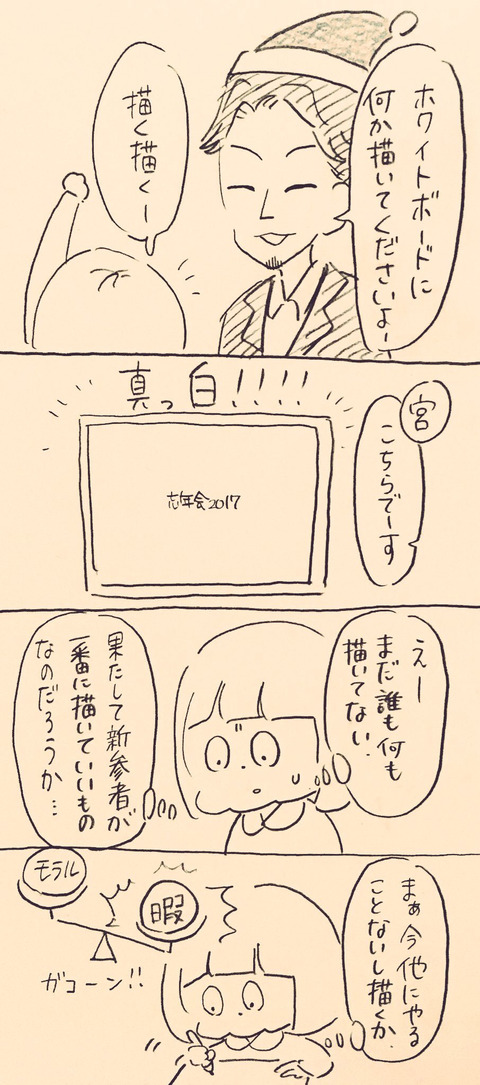 ホワイトボードに
何か描いてくださいよー
描く描くー
真っ白!!!!
宮
こちらでーす
忘年会2017
えー
まだ誰も何も
描いてない.
果たして新参者が
一番に描いていいもの
なのだろうか…
まぁ今他にやる
ことないし描くか.
モラル
暇
ガコーン!!